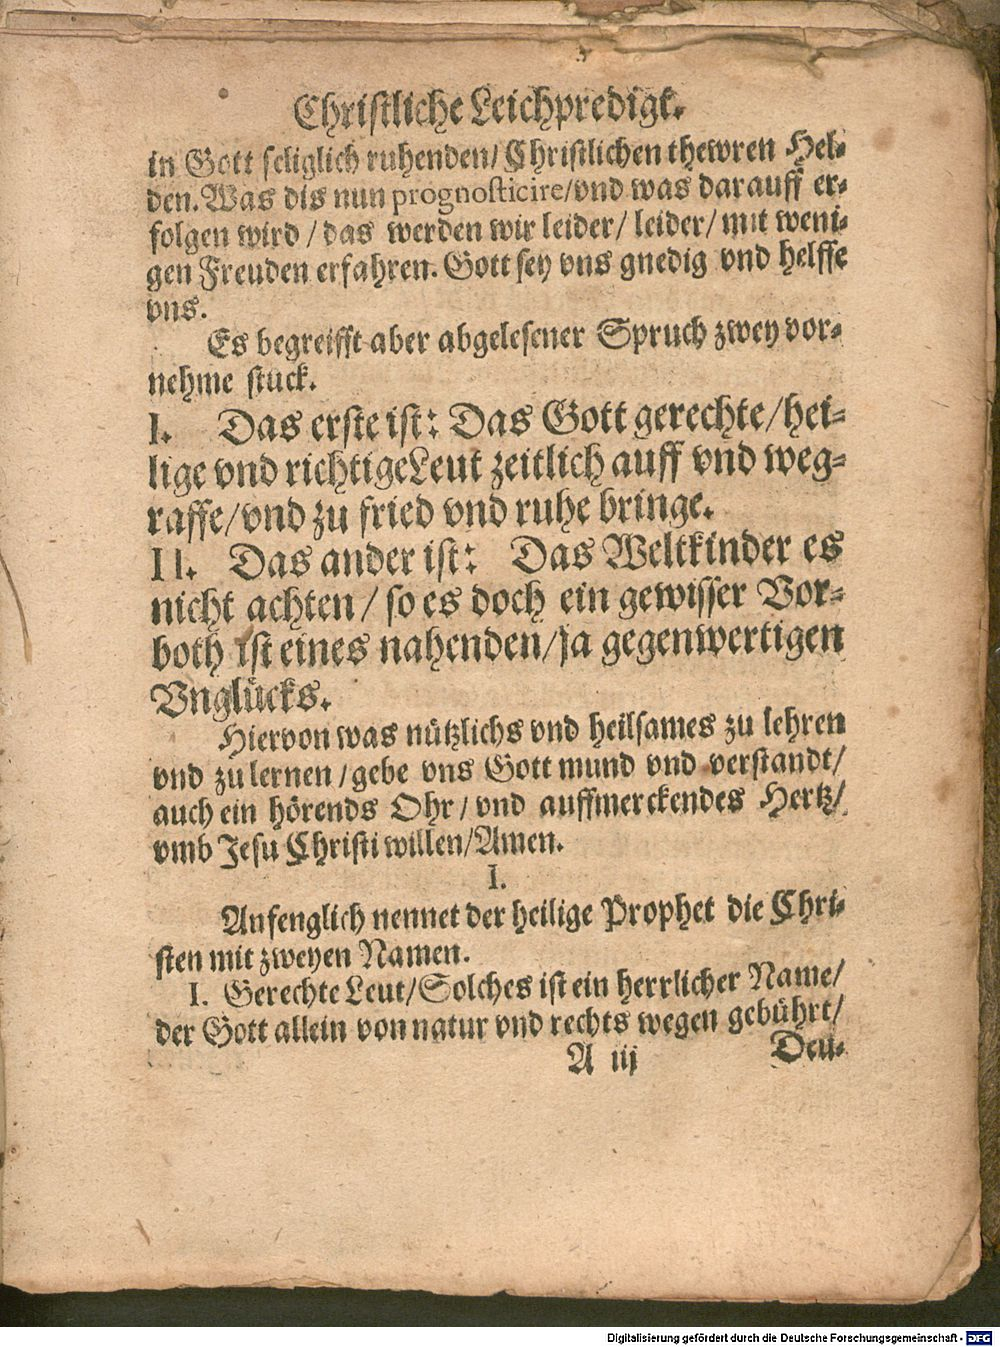 Christliche Leichpredigt.
in Gott seliglich ruhenden/ Christlichen thewren Hel-
den. Was dis nun prognosticire/ vnd was darauff er-
folgen wird / das werden wir leider/ leider/ mit weni-
gen Freuden erfahren. Gott sey vns gnedig vnd helffe
vns.
Es begreifft aber abgelesener Spruch zwey vor-
nehme stück.
I. Das erste ist: Das Gott gerechte/ hei-
lige vnd richtige Leut zeitlich auff vnd weg-
raffe/ vnd zu fried vnd ruhe bringe.
II. Das ander ist: Das Weltkinder es
nicht achten/ so es doch ein gewisser Vor-
both ist eines nahenden/ ja gegenwertigen
Vnglücks.
Hiervon was nützlichs vnd heilsames zu lehren
vnd zu lernen / gebe vns Gott mund vnd verstandt/
auch ein hörends Ohr / vnd auffmerckendes Hertz/
vmb Jesu Christi willen/ Amen.
I.
Anfenglich nennet der heilige Prophet die Chri-
sten mit zweyen Namen.
I. Gerechte Leut/ Solches ist ein herrlicher Name/
der Gott allein von natur vnd rechts wegen gebührt/
A iij Deu-
Digitalisierung gefördert durch die Deutsche Forschungsgemeinschaft - DFG